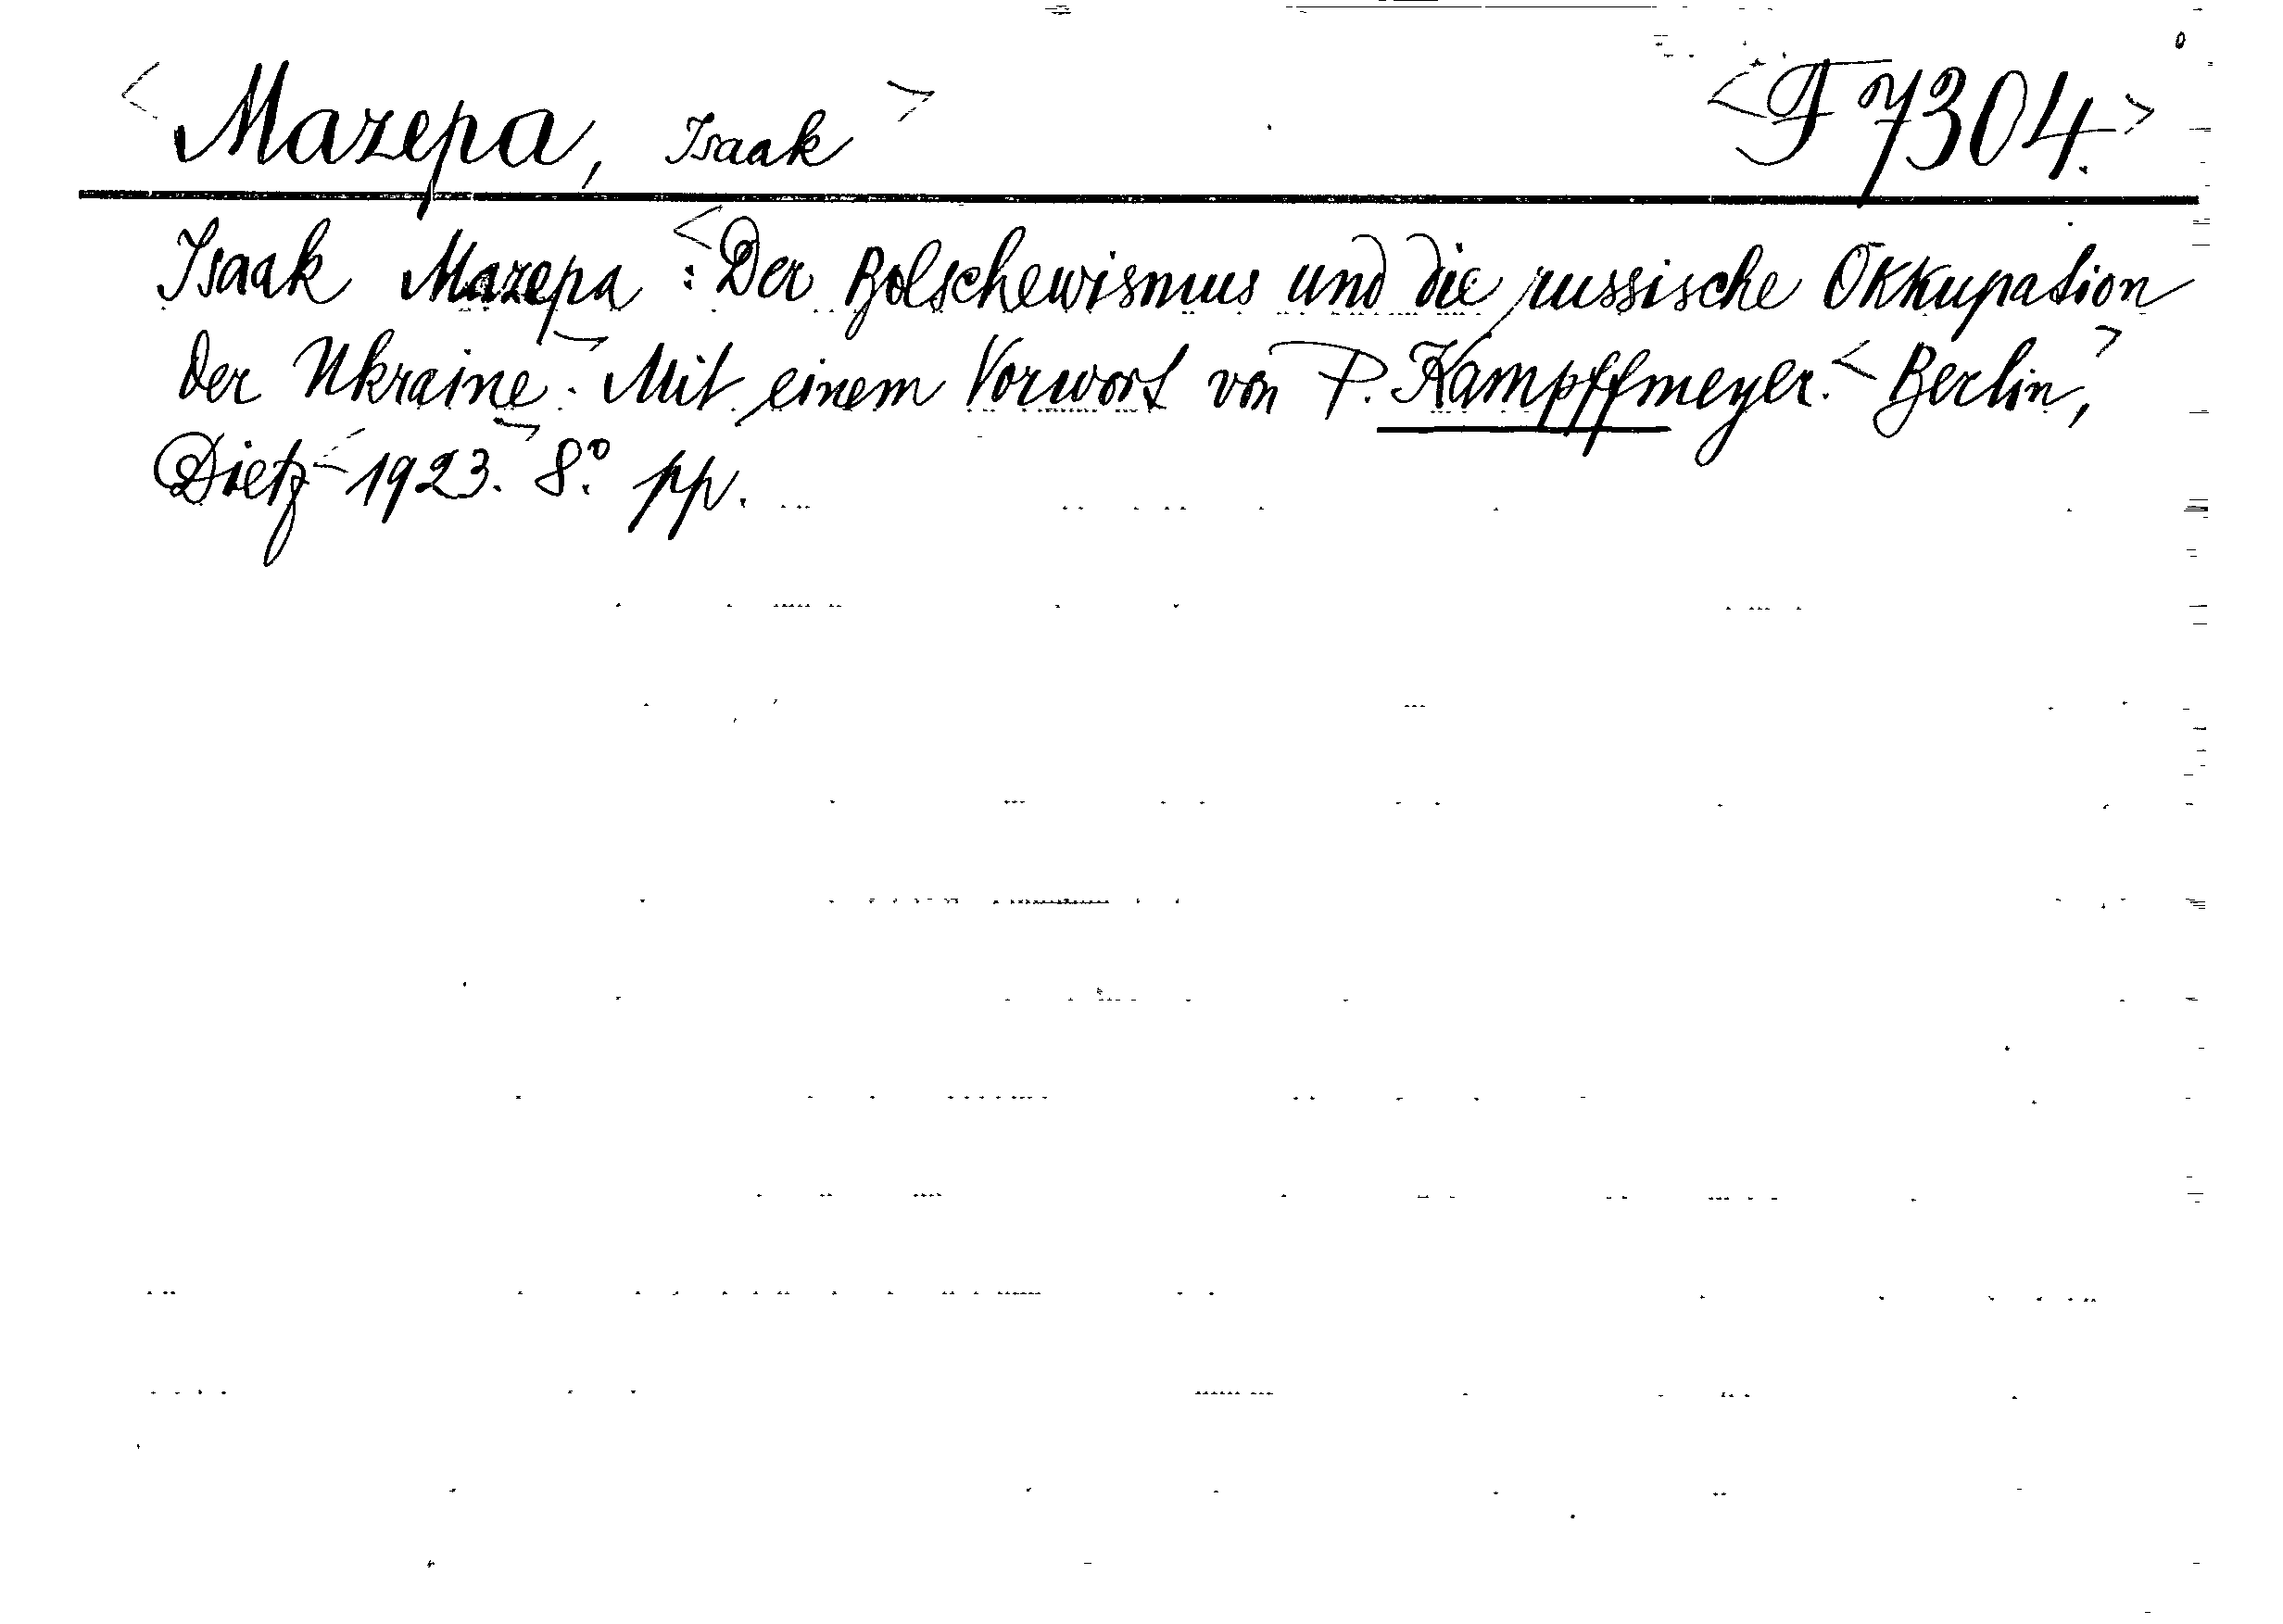 <Mazepa, Isaak> <F 7304.>
Isaak Mazepa : <Der Bolschewismus und die russische Okkupation
der Ukraine>. Mit einem Vorwort von P. Kampffmeyer. <Berlin,>
Dietz <1923.> 8° pp.